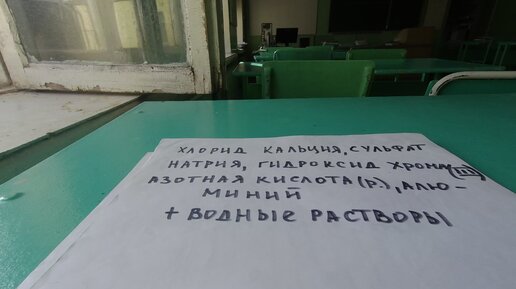 ХЛОРИД КАЛЬЦИЯ, СУЛЬФАТ
НАТРИЯ, ГИДРОКСИД ХРОМА(III)
АЗОТНАЯ КИСЛОТА(Р.), АЛЮ-
МИНИЙ
+ ВОДНЫЕ РАСТВОРЫ